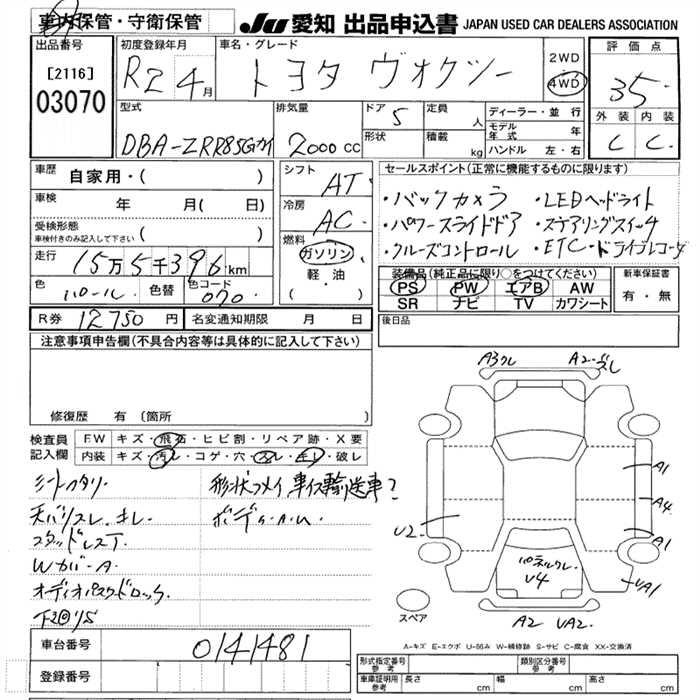 車内保管・守衛保管
JU 愛知 出品申込書 JAPAN USED CAR DEALERS ASSOCIATION
出品番号
[2116]
03070
初度登録年月
R2 年 4月
車名・グレード
トヨタ ヴォクシー
2WD
4WD
評価点
3.5
外装 内装
C C
型式
DBA-ZRR85G
排気量
2000 CC
ドア 5
形状
定員 人
積載 kg
ディーラー・並行
モデル年式 年
ハンドル 左・右
車歴 自家用・( )
車検 年 月( 日)
受検形態
車検付きのみ記入して下さい ( )
走行 15万5千396km
色 パール 色替 色コード 070
シフト AT
冷房 AC
燃料
ガソリン
軽油
( )
セールスポイント(正常に機能するものに限ります)
・バックカメラ ・LEDヘッドライト
・パワースライドドア ・ステアリングスイッチ
・クルーズコントロール ・ETC・ドライブレコーダ
装備品(純正品に限り○をつけてください)
PS PW エアB AW
SR ナビ TV カワシート
新車保証書
有・無
R券 12750 円
名変通知期限 月 日
後日品
注意事項申告欄(不具合内容等は具体的に記入して下さい)
修復歴 有 (箇所 )
検査員記入欄
FW キズ・飛石・ヒビ割・リペア跡・X要
内装 キズ・汚レ・コゲ・穴・スレ・キレ・破レ
シートヘタリ
天バリスレ、キレ
スタッドレスT
Wカバ-A
オディオパスワードロック
下回りS
形状フメイ、車イス輸送車?
ボディG.A.U
A3クレ
A2
A1
A4
A1
UA1
U2
パネルクレ
U4
A2 UA2
スペア
A-キズ E-エクボ U-凹み W-補修跡 S-サビ C-腐食 XX-交換済
車台番号 0141481
登録番号
形式指定番号 参考
類別区分番号 参考
車庫証明用 参考
長さ cm
幅 cm
高さ cm